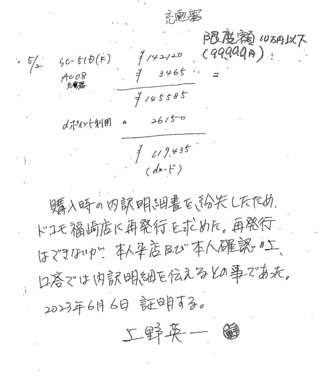 充電器
限度額 10万円以下
(99999円)
5/2 SC-51D(K) ¥142120
AC08 ¥ 3465 =
充電器
¥145585
dポイント利用 ▲ 26150
¥119,435
(dカード)
購入時の内訳明細書を紛失したため、
ドコモ福崎店に再発行を求めた。再発行
はできないが、本人来店及び本人確認の上、
口答では内訳明細を伝えるとの事であった。
2023年6月6日 証明する。
上野英一